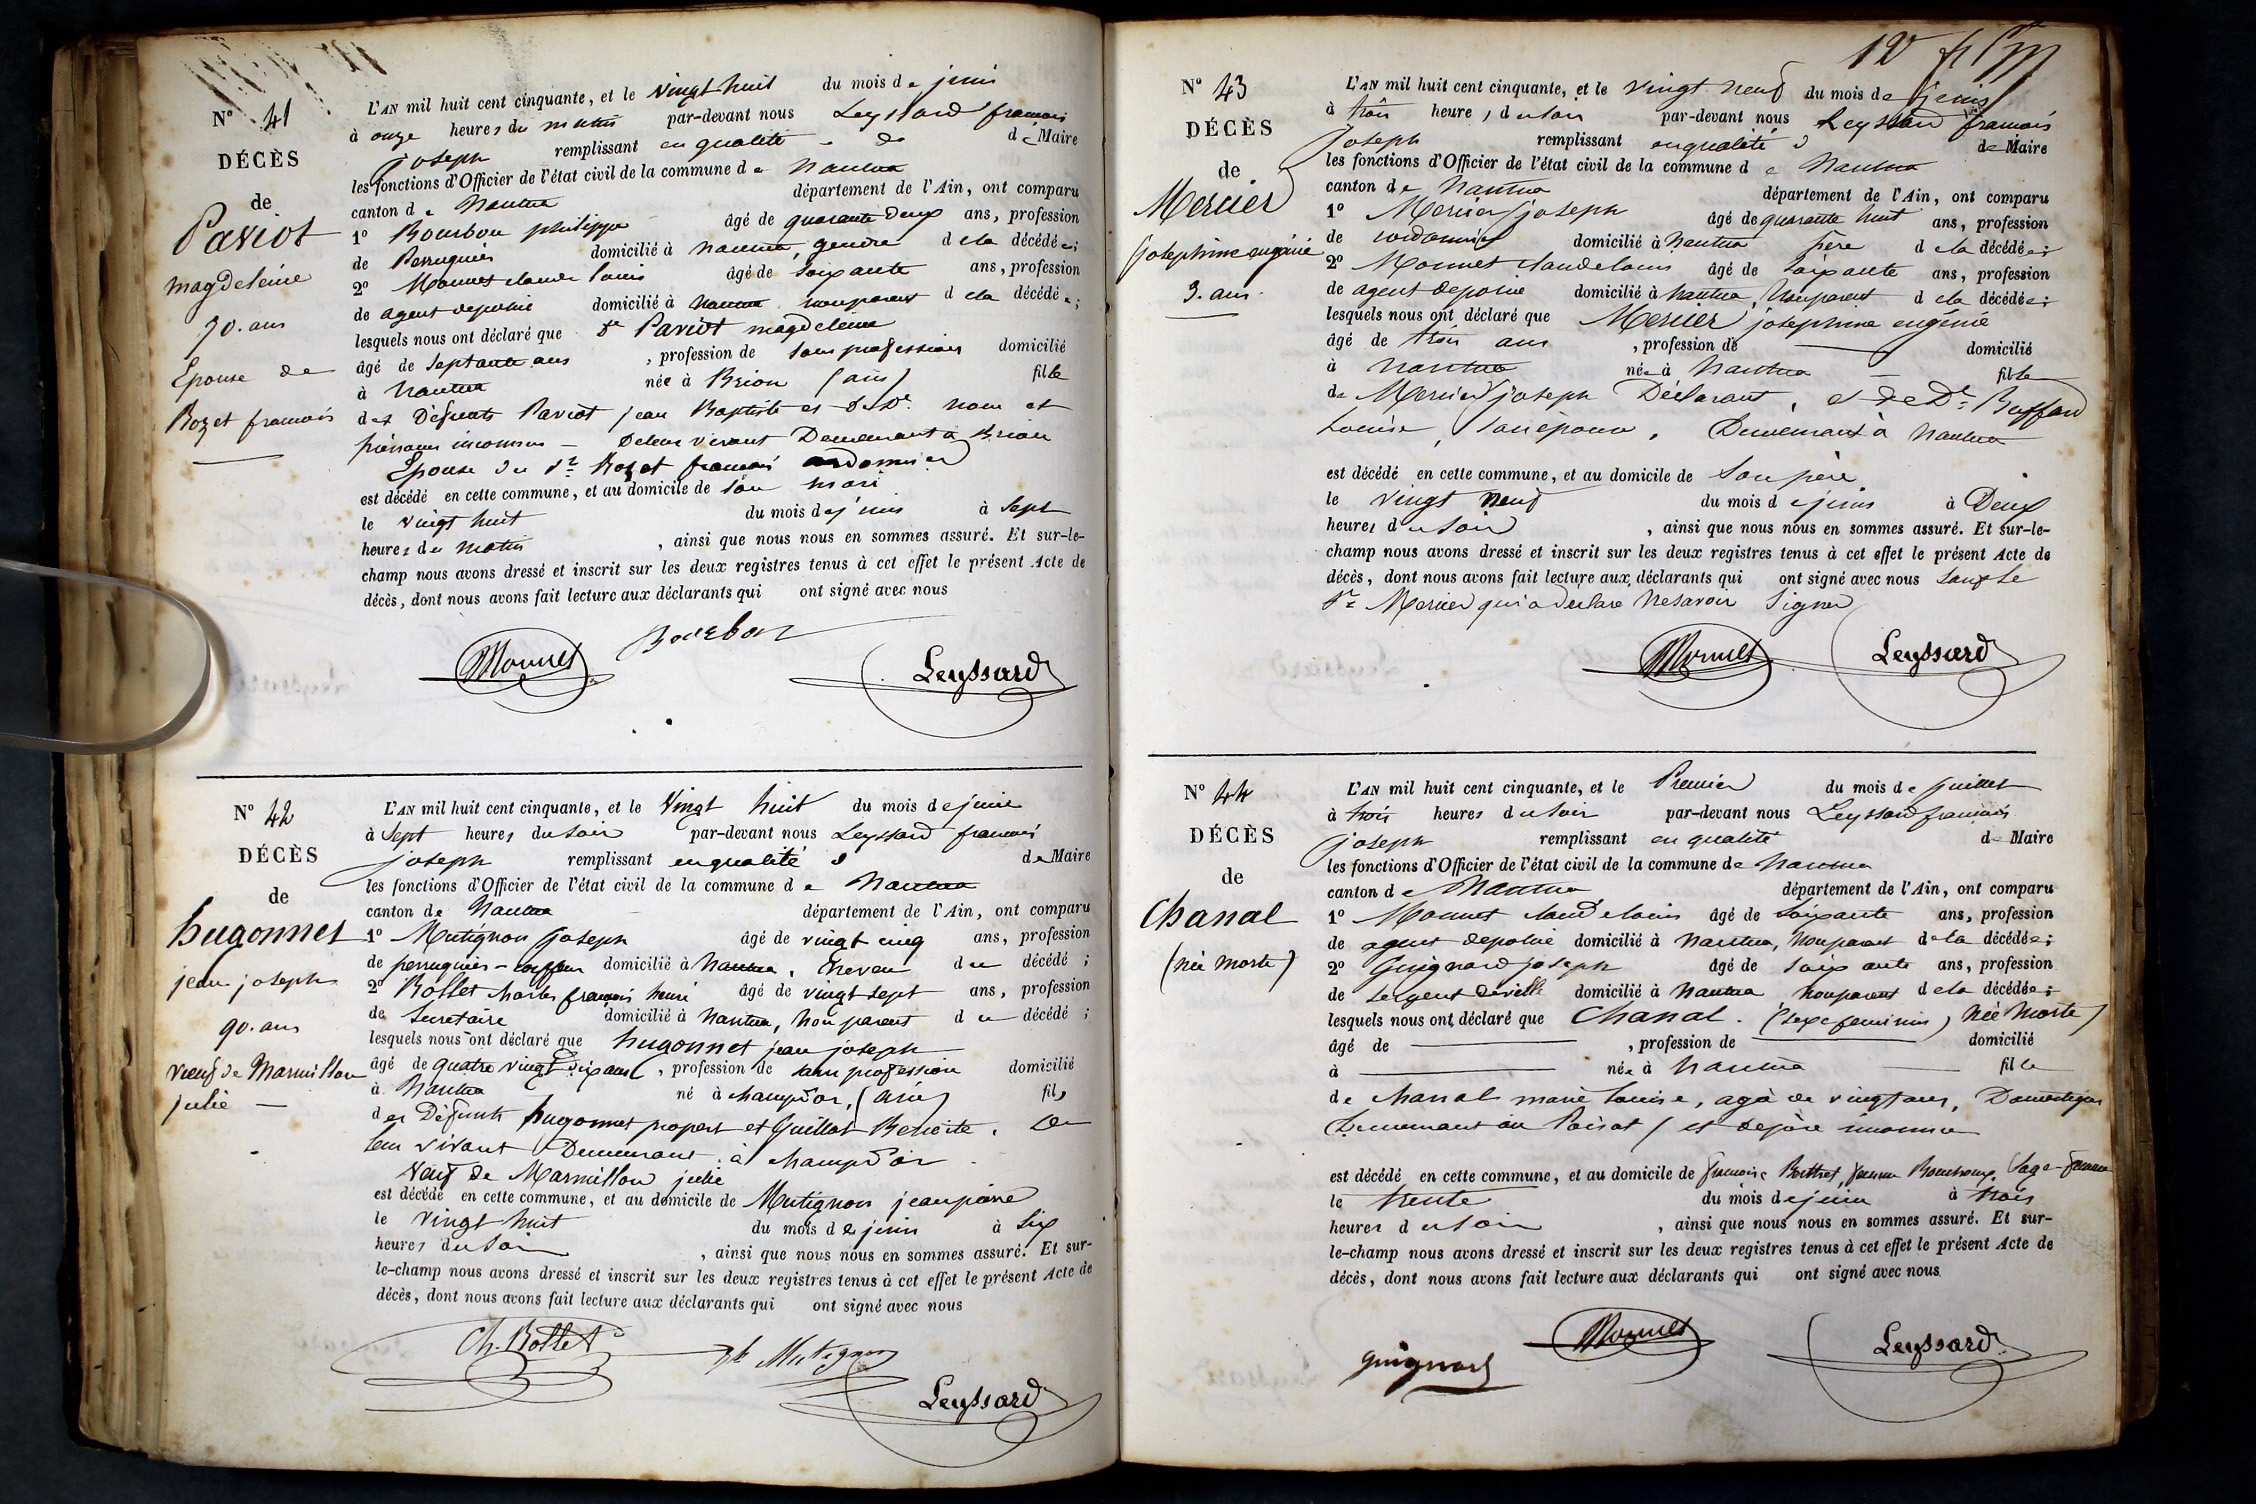 N° 41
DÉCÈS
de
Paviot
magdeleine
70. ans
Epouse de
Rozet francois
L'AN mil huit cent cinquante, et le vingt huit du mois de juin
à onze heures du matin par-devant nous Leyssard francois
joseph remplissant en qualité de de Maire
les fonctions d'Officier de l'état civil de la commune de Nantua
canton de Nantua département de l'Ain, ont comparu
1° Bourbon philippe âgé de quarante deux ans, profession
de Perruquier domicilié à nantua, gendre de la décédée;
2° Monnet claude louis âgé de soixante ans, profession
de agent de police domicilié à nantua non parent de la décédée;
lesquels nous ont déclaré que de Paviot magdeleine
âgé de septante ans, profession de sans profession domicilié
à Nantua née à Brion (ain) fille
des Défunts Paviot jean Baptiste et de De. nom et
prénoms inconnus – De leur vivant Demeurant à Brion
Epouse du Sr Rozet francois cordonnier
est décédé en cette commune, et au domicile de son mari
le vingt huit du mois de juin à sept
heures du matin, ainsi que nous nous en sommes assuré. Et sur-le-
champ nous avons dressé et inscrit sur les deux registres tenus à cet effet le présent Acte de
décès, dont nous avons fait lecture aux déclarants qui ont signé avec nous
Bourbon
Monnet Leyssard
N° 42
DÉCÈS
de
hugonnet
jean joseph
90. ans
veuf de Marmillon
julie –
L'AN mil huit cent cinquante, et le Vingt huit du mois de juin
à Sept heures du soir par-devant nous Leyssard francois
joseph remplissant en qualité de Maire
les fonctions d'Officier de l'état civil de la commune de Nantua
canton de Nantua département de l'Ain, ont comparu
1° Mutignon joseph âgé de vingt cinq ans, profession
de perruquier-coiffeur domicilié à Nantua, neveu du décédé;
2° Bollet charles francois henri âgé de vingt sept ans, profession
de Secretaire domicilié à Nantua, non parent du décédé;
lesquels nous ont déclaré que hugonnet jean joseph
âgé de quatre vingt dix ans, profession de sans profession domicilié
à Nantua né à champd'or, (ain) fils
des Défunts hugonnet propert et Guillot Benoite. De
leur vivant Demeurant à champd'or
Veuf de Marmillon julie
est décédé en cette commune, et au domicile de Mutignon jean pierre
le vingt huit du mois de juin à six
heures du soir, ainsi que nous nous en sommes assuré. Et sur-
le-champ nous avons dressé et inscrit sur les deux registres tenus à cet effet le présent Acte de
décès, dont nous avons fait lecture aux déclarants qui ont signé avec nous
Ch. Bollet Mutignon
Leyssard
12
N° 43
DÉCÈS
de
Mercier
josephine eugénie
3. ans
L'AN mil huit cent cinquante, et le vingt neuf du mois de juin
à trois heures du soir par-devant nous Leyssard francois
joseph remplissant en qualité de Maire
les fonctions d'Officier de l'état civil de la commune de Nantua
canton de Nantua département de l'Ain, ont comparu
1° Mercier joseph âgé de quarante huit ans, profession
de cordonnier domicilié à Nantua père de la décédée;
2° Monnet claude louis âgé de soixante ans, profession
de agent de police domicilié à Nantua, non parent de la décédée;
lesquels nous ont déclaré que Mercier josephine eugénie
âgé de trois ans, profession de domicilié
à Nantua née à Nantua – fille
de Mercier joseph Déclarant, et de De Buffard
Louise, son épouse, Demeurant à Nantua
est décédé en cette commune, et au domicile de son père
le vingt neuf du mois de juin à Deux
heures du soir, ainsi que nous nous en sommes assuré. Et sur-le-
champ nous avons dressé et inscrit sur les deux registres tenus à cet effet le présent Acte de
décès, dont nous avons fait lecture aux déclarants qui ont signé avec nous sauf le
Sr Mercier qui a déclaré ne savoir signer
Monnet Leyssard
N° 44
DÉCÈS
de
Chanal
(née morte)
L'AN mil huit cent cinquante, et le Premier du mois de juillet
à trois heures du soir par-devant nous Leyssard francois
joseph remplissant en qualité de Maire
les fonctions d'Officier de l'état civil de la commune de Nantua
canton de Nantua département de l'Ain, ont comparu
1° Monnet claude louis âgé de soixante ans, profession
de agent de police domicilié à Nantua, non parent de la décédée;
2° Guignard joseph âgé de soixante ans, profession
de sergent de ville domicilié à Nantua non parent de la décédée;
lesquels nous ont déclaré que Chanal. (sexe feminin) née Morte
âgé de , profession de domicilié
à née à Nantua fille
de chanal marie louise, agée de vingt ans, Domestique
Demeurant au Poisat / et de père inconnu
est décédé en cette commune, et au domicile de francoise Berthet, femme Bouchoux, Sage-femme
le trente du mois de juin à trois
heures du soir, ainsi que nous nous en sommes assuré. Et sur-
le-champ nous avons dressé et inscrit sur les deux registres tenus à cet effet le présent Acte de
décès, dont nous avons fait lecture aux déclarants qui ont signé avec nous
guignard Monnet Leyssard